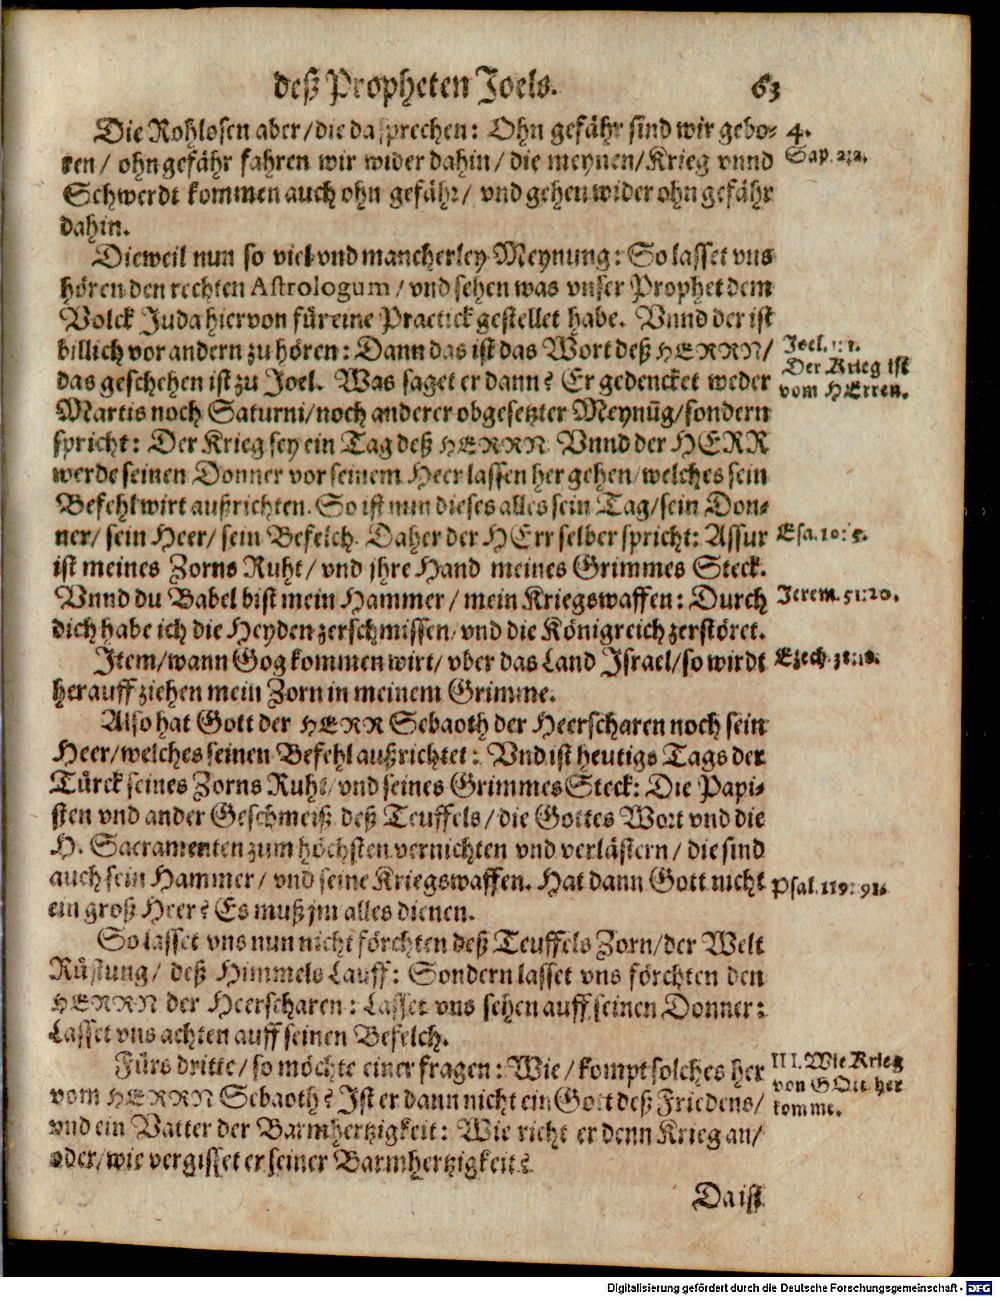 deß Propheten Joels. 63
Die Rohlosen aber/die da sprechen: Ohn gefähr sind wir gebo- 4.
ren/ ohn gefähr fahren wir wider dahin/ die meynen/Krieg vnnd Sap. 2:2.
Schwerdt kommen auch ohn gefähr/ vnd gehen wider ohn gefähr
dahin.
Dieweil nun so viel vnd mancherley Meynung: So lasset vns
hören den rechten Astrologum/ vnd sehen was vnser Prophet dem
Volck Juda hiervon für eine Practick gestellet habe. Vnnd der ist
billich vor andern zu hören: Dann das ist das Wort deß HERRN/ Joel. 1:1.
das geschehen ist zu Joel. Was saget er dann? Er gedencket weder Der Krieg ist
Martis noch Saturni/noch anderer obgesetzter Meynūg/sondern vom HErren.
spricht: Der Krieg sey ein Tag deß HERRN. Vnnd der HERR
werde seinen Donner vor seinem Heer lassen her gehen/welches sein
Befehl wirt außrichten. So ist nun dieses alles sein Tag/sein Don-
ner/ sein Heer/ sein Befelch. Daher der HErr selber spricht: Assur Esa. 10: 5.
ist meines Zorns Ruht/ vnd jhre Hand meines Grimmes Steck.
Vnnd du Babel bist mein Hammer/ mein Kriegswaffen: Durch Jerem. 51:20.
dich habe ich die Heyden zerschmissen/ vnd die Königreich zerstöret.
Item/wann Gog kommen wirt/ vber das Land Israel/so wirdt Ezech. 38:18.
herauff ziehen mein Zorn in meinem Grimme.
Also hat Gott der HERR Sebaoth der Heerscharen noch sein
Heer/welches seinen Befehl außrichtet: Vnd ist heutigs Tags der
Türck seines Zorns Ruht/ vnd seines Grimmes Steck: Die Papi-
sten vnd ander Geschmeiß deß Teuffels/die Gottes Wort vnd die
H. Sacramenten zum höchsten vernichten vnd verlästern/ die sind
auch sein Hammer/ vnd seine Kriegswaffen. Hat dann Gott nicht Psal. 119: 91.
ein groß Heer? Es muß jm alles dienen.
So lasset vns nun nicht förchten deß Teuffels Zorn/der Welt
Rüstung/ deß Himmels Lauff: Sondern lasset vns förchten den
HERRN der Heerscharen: Lasset vns sehen auff seinen Donner:
Lasset vns achten auff seinen Befelch.
Fürs dritte/so möchte einer fragen: Wie/kompt solches her III. Wie Krieg
vom HERRN Sebaoth? Ist er dann nicht ein Gott deß Friedens/ von GOtt her
vnd ein Vatter der Barmhertzigkeit: Wie richt er denn Krieg an/ komme.
oder/wie vergisset er seiner Barmhertzigkeit?
Da ist
Digitalisierung gefördert durch die Deutsche Forschungsgemeinschaft - DFG